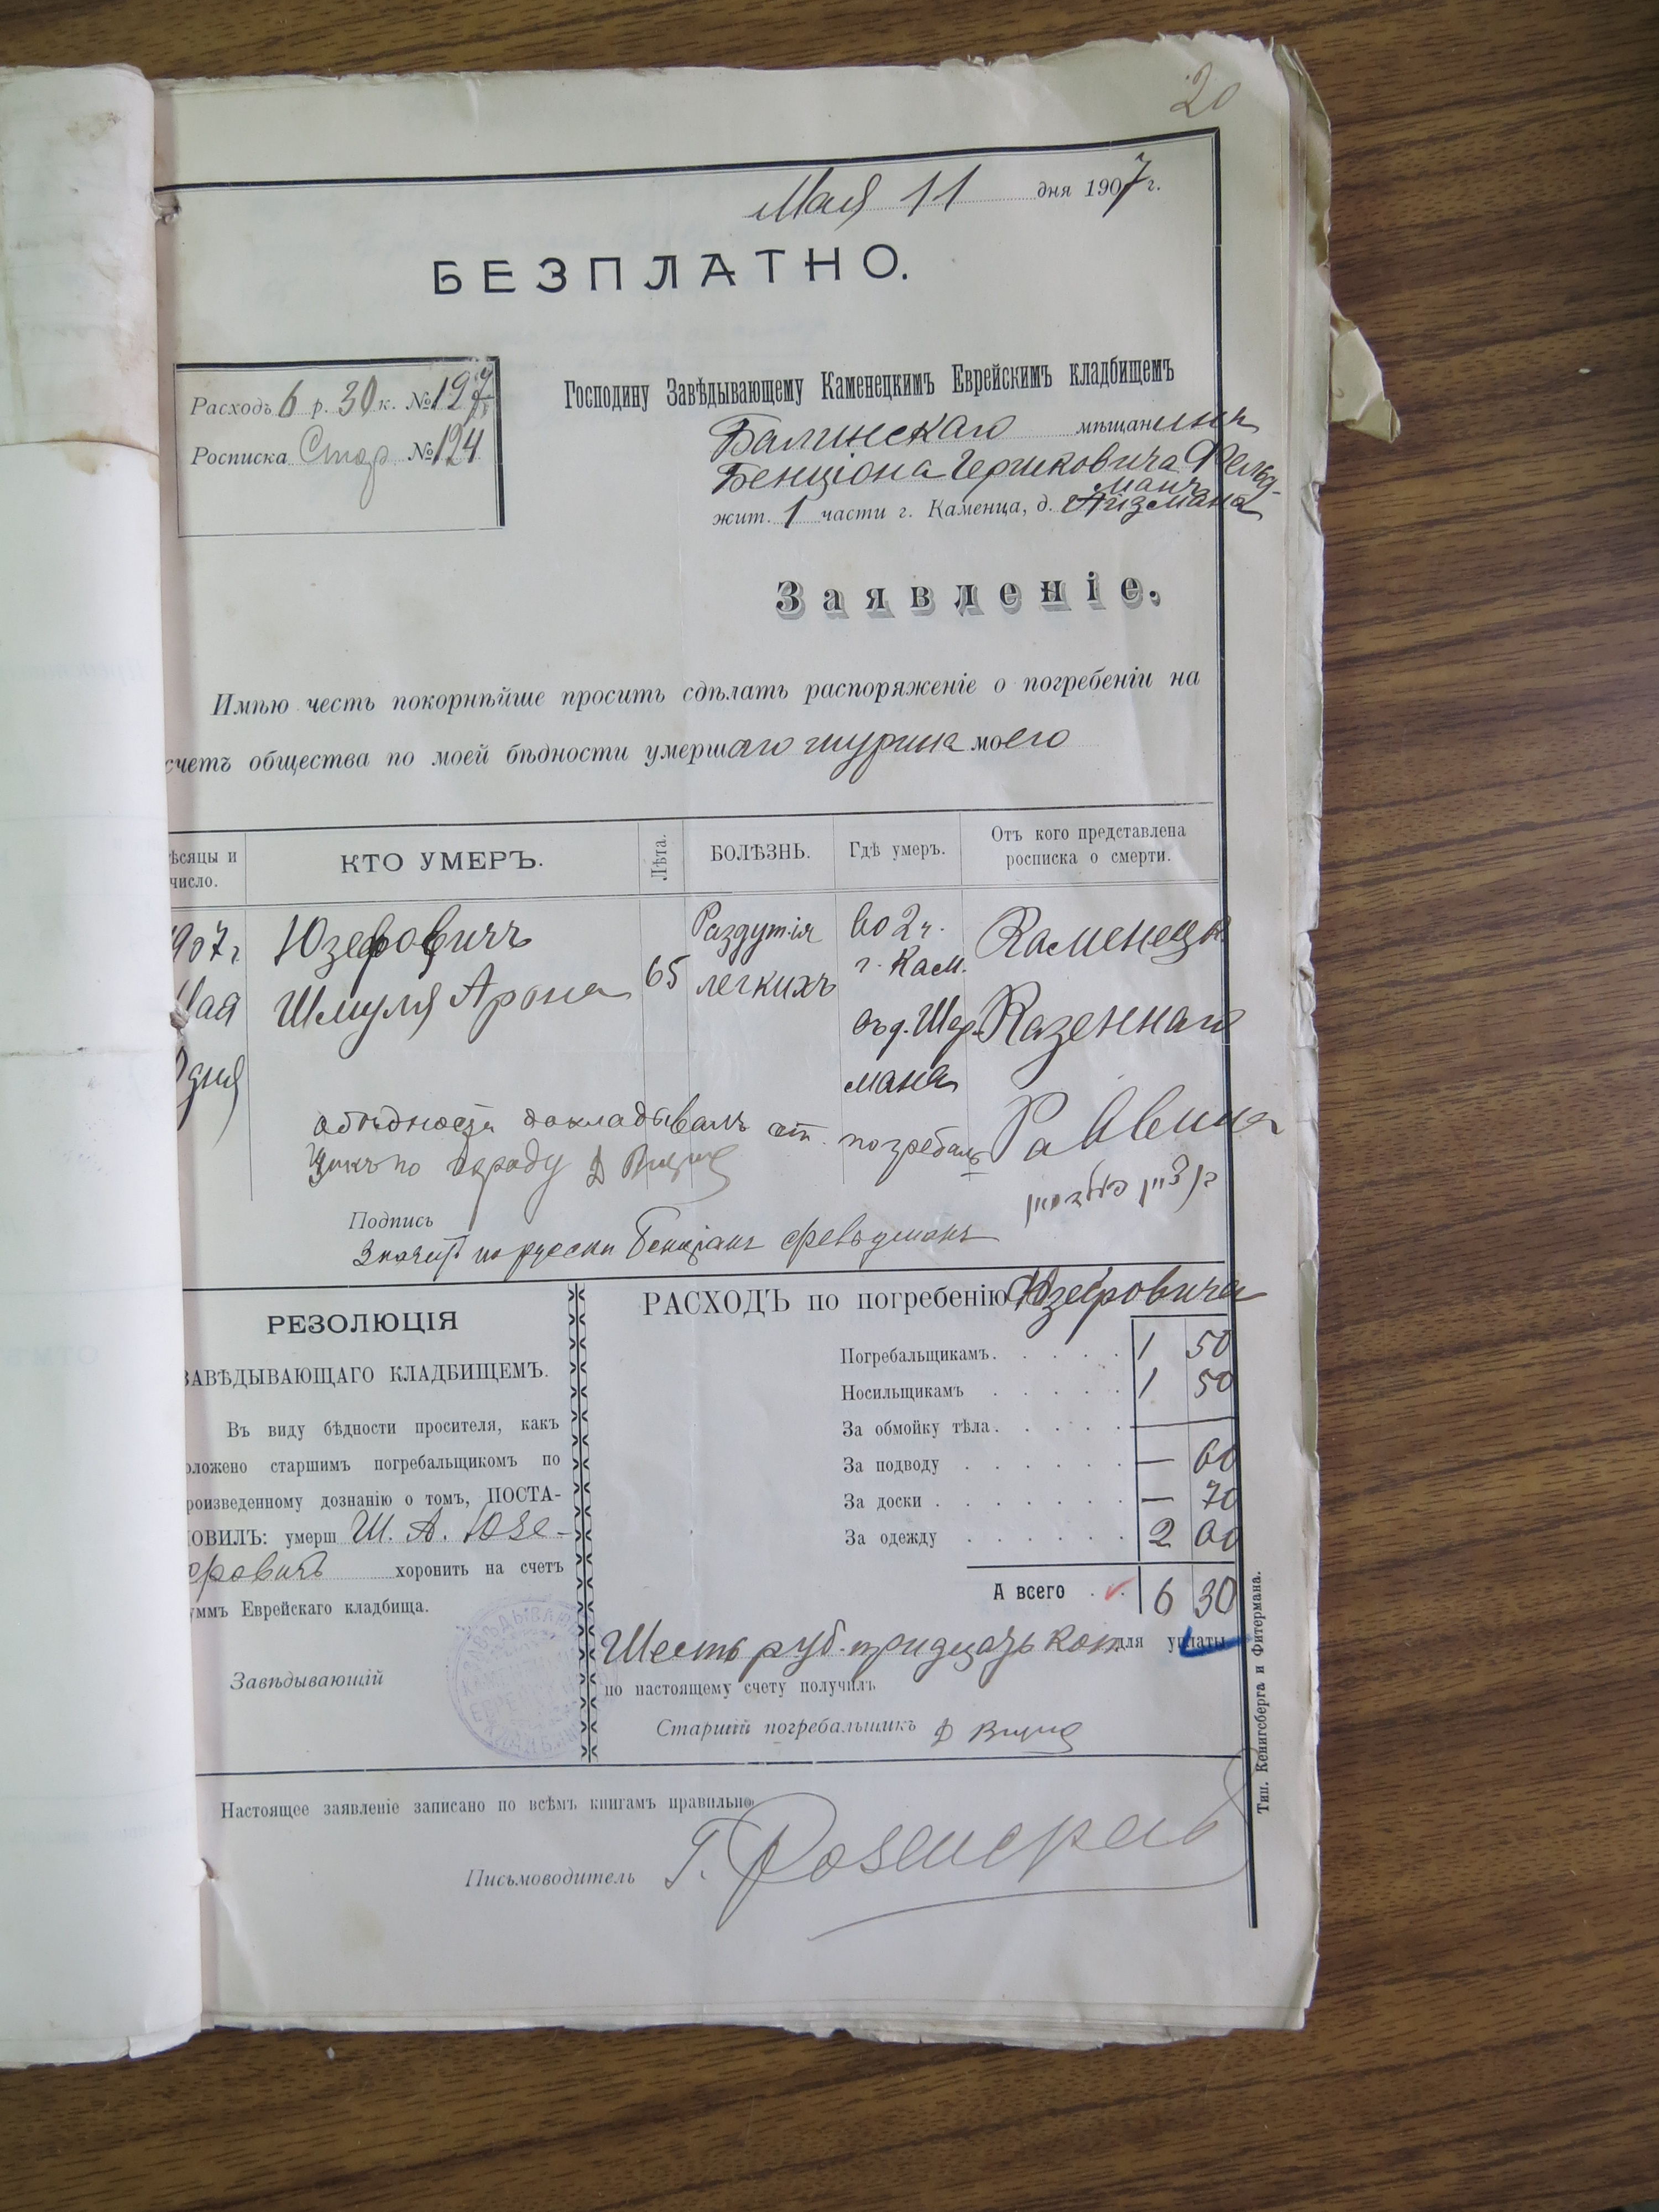 20
Мая 11 дня 1907 г.
БЕЗПЛАТНО.
Расходъ 6 р. 30 к. № 197
Росписка Стар. № 124
Господину Завѣдывающему Каменецкимъ Еврейскимъ кладбищемъ
Балинскаго мѣщанина
Бенціона Гершковича Фельд-
мана
жит. 1 части г. Каменца, д. Айзмана
Заявленіе.
Имѣю честь покорнѣйше просить сдѣлать распоряженіе о погребеніи на
счетъ общества по моей бѣдности умершаго шурина моего
ѣсяцы и число.
КТО УМЕРЪ.
Лѣта.
БОЛѢЗНЬ.
Гдѣ умеръ.
Отъ кого представлена росписка о смерти.
907 г
Юзефовичъ
Раздутія
во 2 ч.
Каменецк
Мая
Шмуля Арона
65
легкихъ
г. Кам.
въ д. Шар-
Казеннаго
дня
мана
Раввина
обѣдности докладывалъ ст. погребаль
щикъ по
Подпись
בן ציון פעלדמאן
Значит по русски Бенціанъ Фельдманъ
РЕЗОЛЮЦІЯ
ЗАВѢДЫВАЮЩАГО КЛАДБИЩЕМЪ.
Въ виду бѣдности просителя, какъ
оложено старшимъ погребальщикомъ по
роизведенному дознанію о томъ, ПОСТА-
ОВИЛЪ: умерш Ш. А. Юзе-
фовичъ хоронить на счетъ
уммъ Еврейскаго кладбища.
Завѣдывающій
РАСХОДЪ по погребенію Юзефовича
Погребальщикамъ. 1 50
Носильщикамъ 1 50
За обмойку тѣла. —
За подводу — 60
За доски — 70
За одежду 2 00
А всего 6 30
Шесть руб. тридцать коп. для уплаты
по настоящему счету получилъ
Старшій погребальщикъ
Настоящее заявленіе записано по всѣмъ книгамъ правильно.
Письмоводитель Г.
Тип. Кенигсберга и Фитермана.